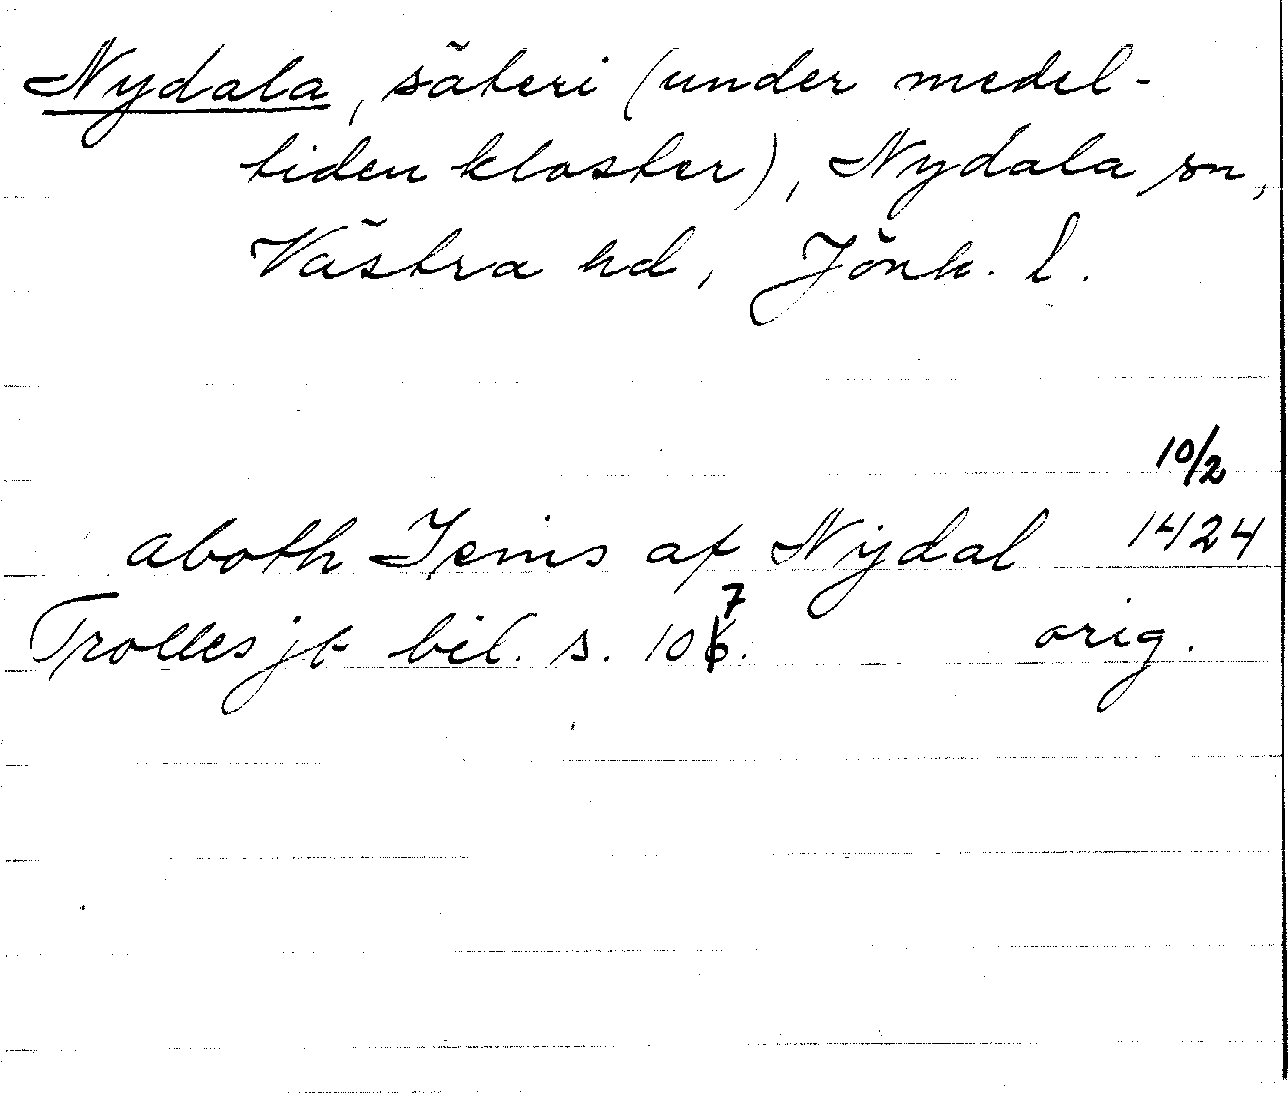 Nydala, säteri (under medel-
tiden kloster), Nydala sn,
Västra hd, Jönk. l.
10/2
aboth Jenis af Nijdal 1424
Trolles jb bil. s. 107. orig.